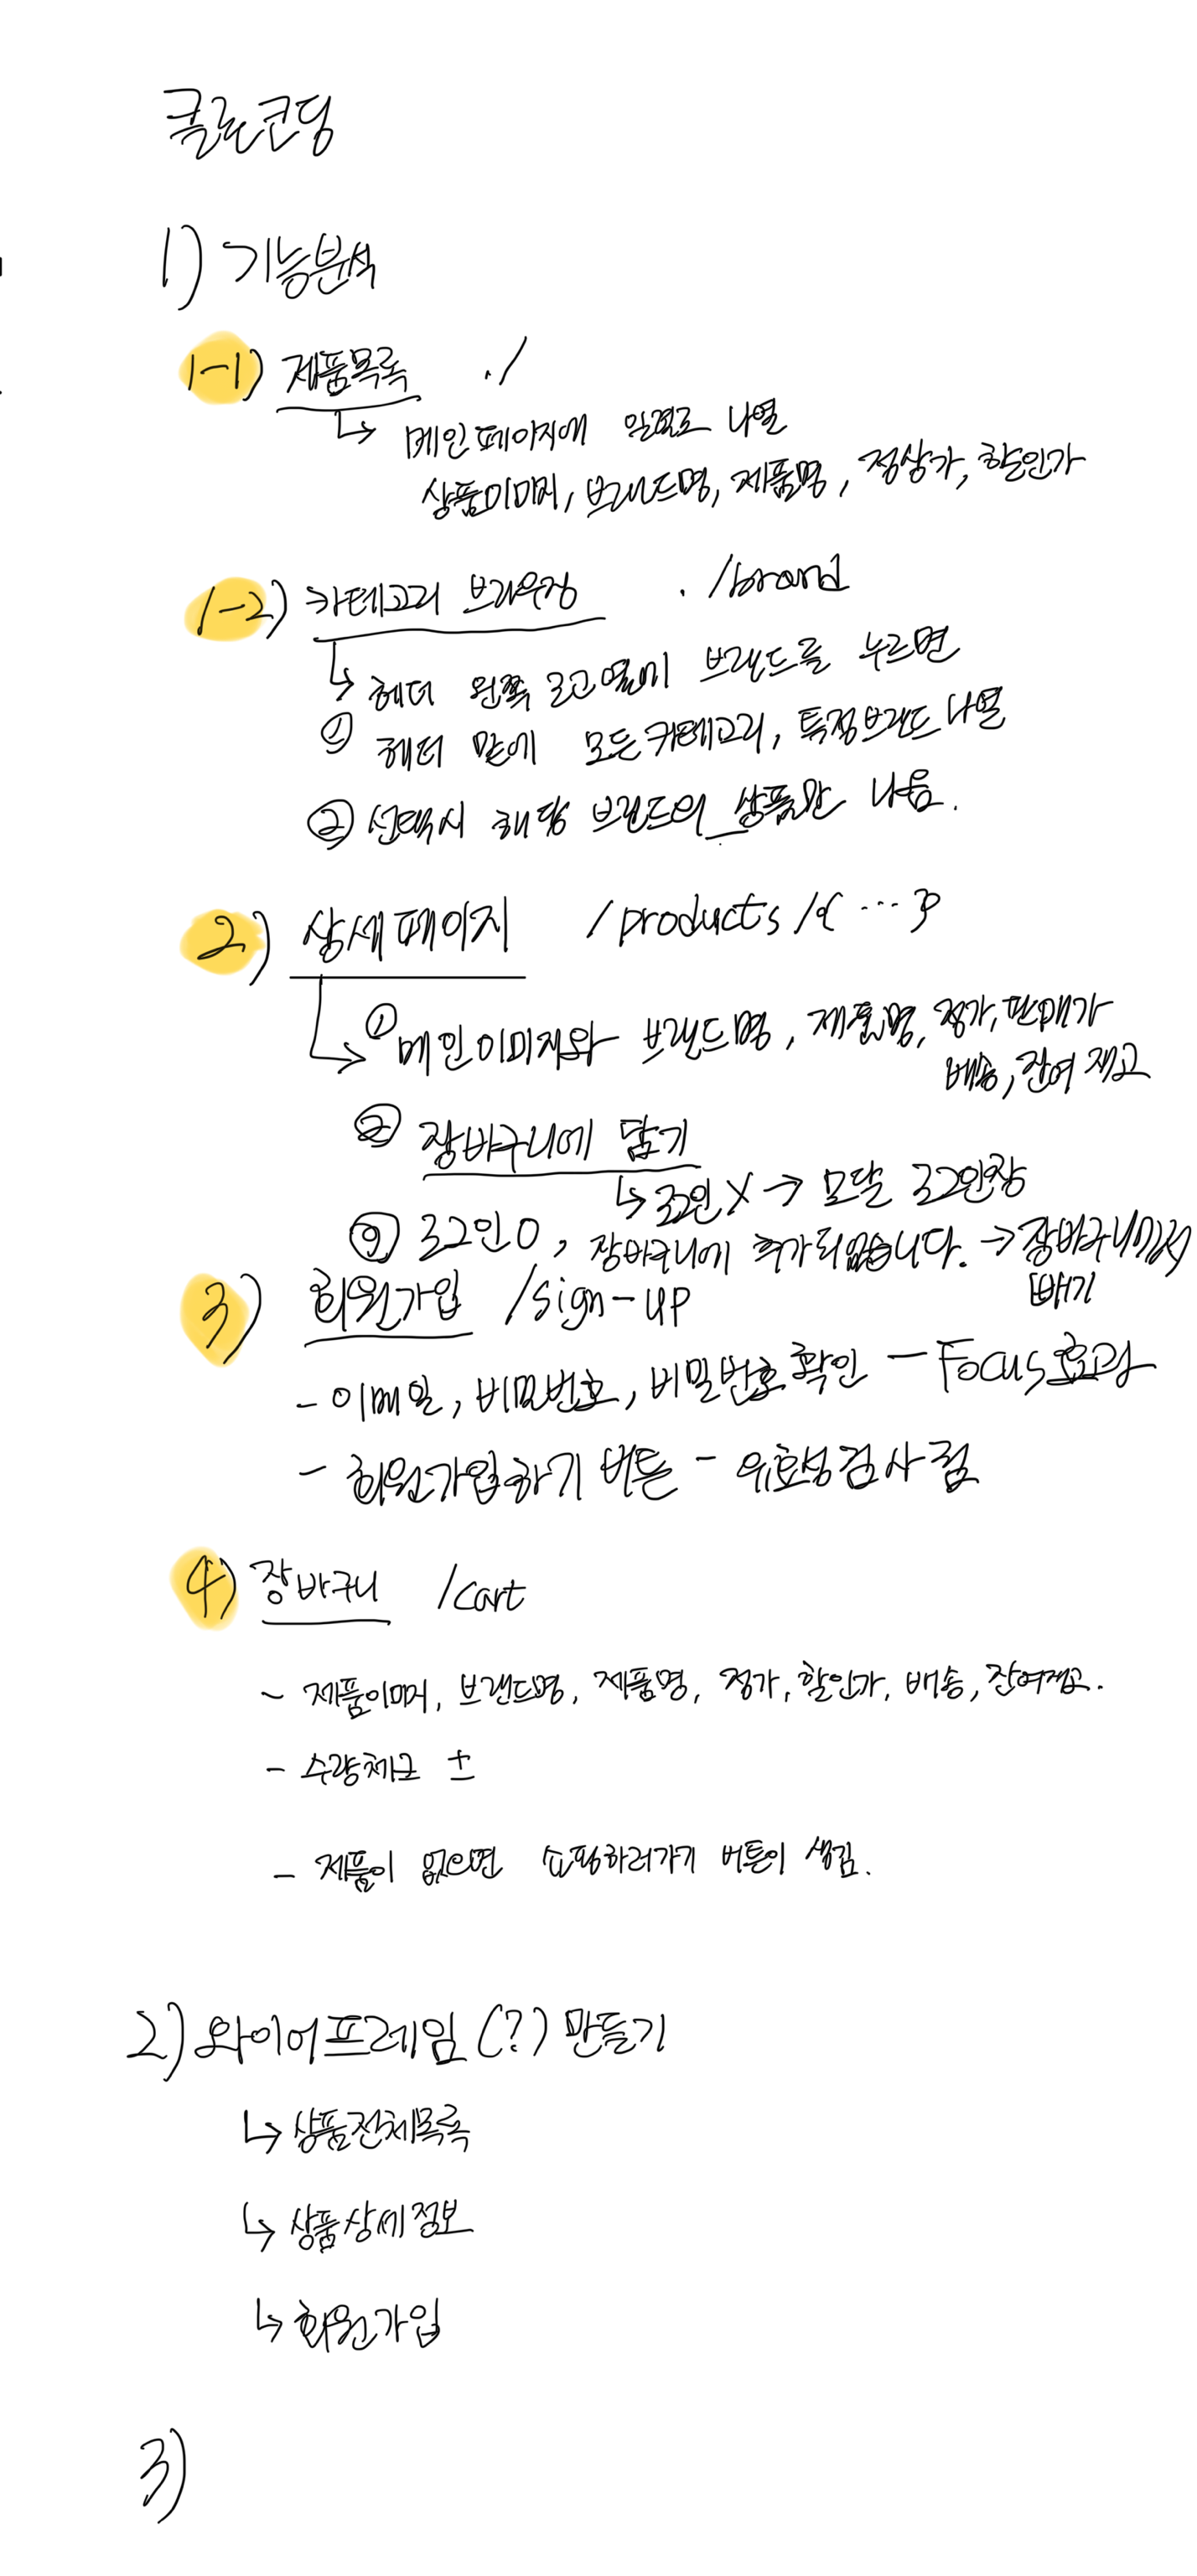 클론코딩
1) 기능분석
1-1) 제품목록 ./
↳ 메인페이지에 일렬로 나열
상품이미지, 브랜드명, 제품명, 정상가, 할인가
1-2) 카테고리 브라우징 ./brand
↳ 헤더 왼쪽 로고 옆에 브랜드를 누르면
① 헤더 밑에 모든카테고리, 특정브랜드 나열
② 선택시 해당 브랜드의 상품만 나옴.
2) 상세페이지 /products/
① 메인이미지와 브랜드명, 제품명, 정가, 판매가
배송, 잔여 재고
② 장바구니에 담기
↳ 로그인 X → 모달 로그인창
③ 로그인 O, 장바구니에 추가되었습니다. → 장바구니에서
빼기
3) 회원가입 /sign-up
- 이메일, 비밀번호, 비밀번호확인 - Focus효과
- 회원가입하기 버튼 - 유효성검사
4) 장바구니 /cart
- 제품이미지, 브랜드명, 제품명, 정가, 할인가, 배송, 잔여재고.
- 수량체크 ±
- 제품이 없으면 쇼핑하러가기 버튼이 생김.
2) 와이어프레임(?) 만들기
↳ 상품전체목록
↳ 상품상세정보
↳ 회원가입
3)